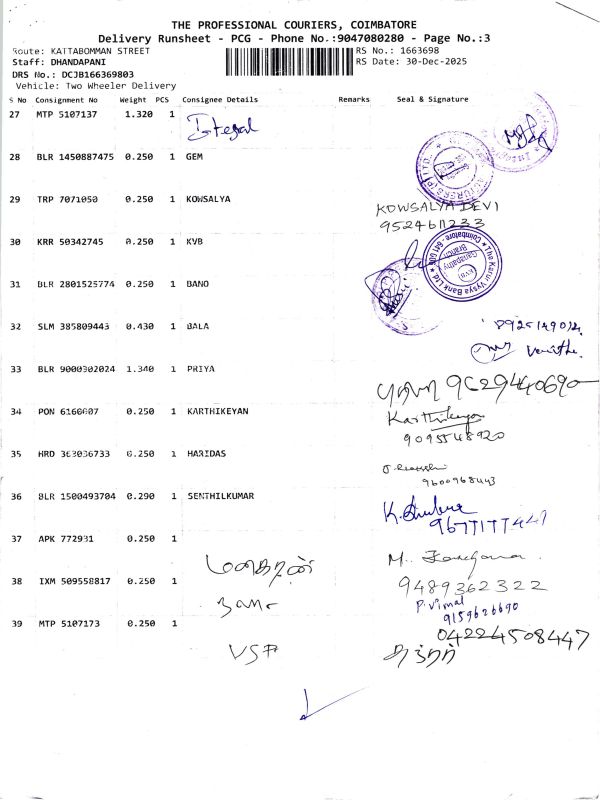 THE PROFESSIONAL COURIERS, COIMBATORE
Delivery Runsheet - PCG - Phone No.:9047080280 - Page No.:3
Route: KATTABOMMAN STREET RS No.: 1663698
Staff: DHANDAPANI RS Date: 30-Dec-2025
DRS No.: DCJB166369803
Vehicle: Two Wheeler Delivery
S No Consignment No Weight PCS Consignee Details Remarks Seal & Signature
27 MTP 5107137 1.320 1
28 BLR 1450887475 0.250 1 GEM
29 TRP 7071050 0.250 1 KOWSALYA
KOWSALYA DEVI
9524611233
30 KRR 50342745 0.250 1 KVB
The Karur Vysya Bank Ltd. Coimbatore - 641 006
(KVB)
Ganapathy
Branch
31 BLR 2801525774 0.250 1 BANO
32 SLM 385809443 0.430 1 BALA
33 BLR 9000302024 1.340 1 PRIYA
9629440690
34 PON 6160007 0.250 1 KARTHIKEYAN
Karthikeyan
9095548920
35 HRD 363036733 0.250 1 HARIDAS
9600968443
36 BLR 1500493704 0.290 1 SENTHILKUMAR
9677177447
37 APK 772931 0.250 1
மனோகரன்
38 IXM 509558817 0.250 1
9489362322
P. Vimal
9159626690
39 MTP 5107173 0.250 1
04224508447
VSP